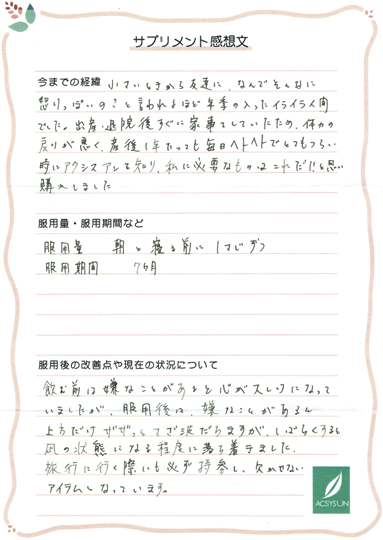 サプリメント感想文
今までの経緯 小さいときから友達に、なんでそんなに
怒りっぽいの？と言われるほど年季の入ったイライラ人間
でした。出産・退院後すぐに家事をしていたため、体力の
戻りが悪く、産後1年たっても毎日ヘトヘトでとてもつらい
時にアクシスアンを知り、私に必要なものはこれだ!!と思い
購入しました
服用量・服用期間など
服用量 朝と寝る前に1さじずつ
服用期間 7ヶ月
服用後の改善点や現在の状況について
飲む前は嫌なことがあると心が大しけになって
いましたが、服用後は、嫌なことがあると
上方だけザザッとさざ波だちますが、しばらくすると
凪の状態になる程度に落ち着きました。
旅行に行く際にも必ず持参し、欠かせない
アイテムとなっています。
ACSYSUN